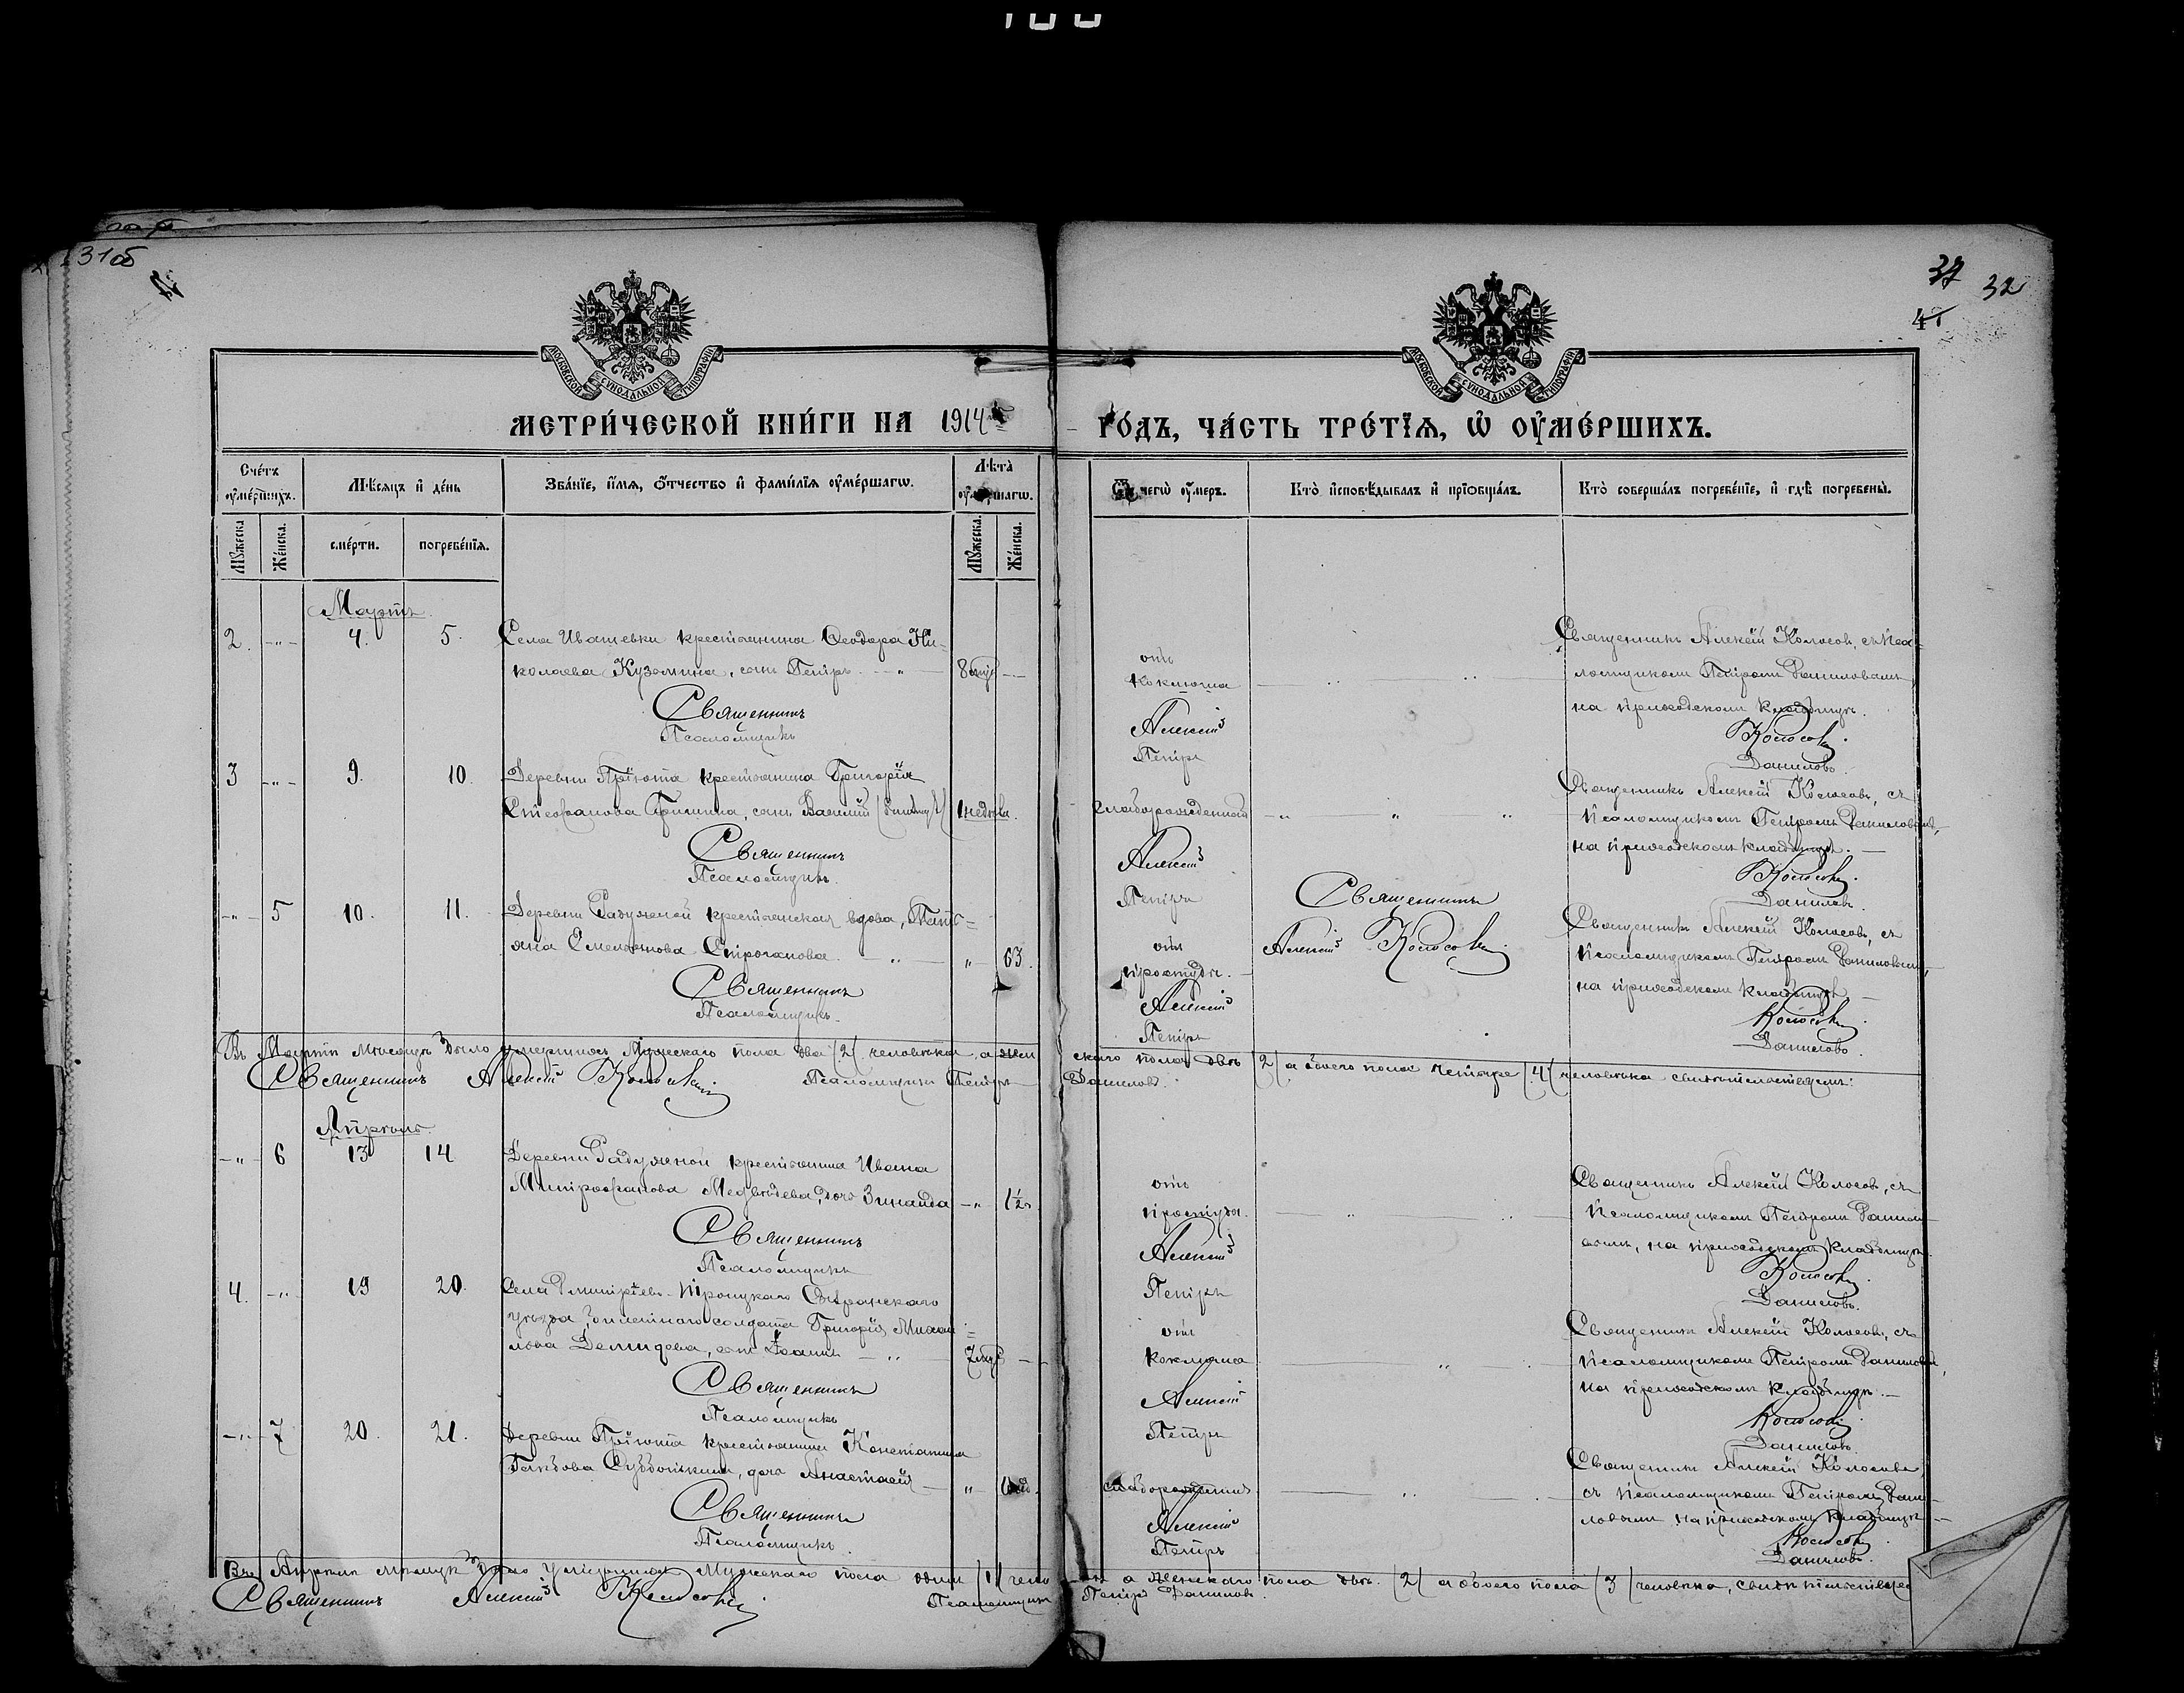 31об
37 32
41
МОСКОВСКОЙ СѴНОДАЛЬНОЙ ТИПОГРАФІИ
МОСКОВСКОЙ СѴНОДАЛЬНОЙ ТИПОГРАФІИ
МЕТРИ́ЧЕСКОЙ КНИ́ГИ НА 1914
ГО́ДЪ, ЧА́СТЬ ТРЕ́ТІѦ, Ѡ҆ ОУ҆МЕ́РШИХЪ.
Сче́тъ оу҆ме́ршихъ.
Мѣ́сяцъ и҆ де́нь
Зва́нїе, и҆́мѧ, ѻ҆́тчество и҆ фами́лїѧ оу҆ме́ршагѡ.
Лѣта̀ оу҆ме́ршагѡ.
Ѿ чегѡ̀ оу҆́меръ.
Кто̀ и҆сповѣ́дывалъ и҆ прїѡбща́лъ.
Кто̀ соверша́лъ погребе́нїе, и҆ гдѣ̀ погребены̀.
Мꙋ́жеска
Же́нска.
сме́рти.
погребе́нїѧ.
Мꙋ́жеска.
Же́нска.
Мартъ.
2. -"- 4. 5. Села Ивашевки крестьянина Ѳеодора Ни-
колаева Кузьмина, сынъ Петръ. -"-
Священникъ
Псаломщикъ
отъ
коклюша
Алексій
Петръ
Священникъ Алексій Колосовъ, съ пса-
ломщикомъ Петромъ Даниловымъ,
на приходскомъ кладбищѣ.
Колосовъ.
Даниловъ.
3 -"- 9. 10. Деревни Пріюта крестьянина Григорія
сынъ Василій
Священникъ
Псаломщикъ.
слаборожденный
Алексій
Петръ
Священникъ Алексій Колосовъ, съ
псаломщикомъ Петромъ Даниловымъ,
на приходскомъ кладбищѣ. -
Колосовъ.
Даниловъ.
-"- 5 10. 11. Деревни Радужной крестьянская вдова, Тать-
яна Емельянова Строганова. -"- " 63.
Священникъ
Псаломщикъ.
отъ
простуды. -
Алексій
Петръ
Священникъ
Алексій Колосовъ.
Священникъ Алексій Колосовъ, съ
псаломщикомъ Петромъ Даниловымъ,
на приходскомъ кладбищѣ -
Колосовъ
Даниловъ.
Въ Мартѣ мѣсяцѣ было умершихъ мужескаго пола два /2/ человѣка, а жен
скаго пола двѣ /2/ а обоего пола четыре /4/ человѣка свидѣтельствуемъ:
Священникъ Алексій Колосовъ Псаломщикъ Петръ
Даниловъ.
Апрѣль.
-"- 6 13 14 Деревни Радужной крестьянина Ивана
Митрофанова Медвѣдева, дочь Зинаида -" 1½.
Священникъ
Псаломщикъ
отъ
простуды.
Алексій
Петръ
Священникъ Алексій Колосовъ, съ
псаломщикомъ Петромъ Данил-
овымъ, на приходскомъ кладбищѣ.
Колосовъ.
Даниловъ.
4. -"- 19 20. Села
уѣзда, билетнаго солдата Григорія Михаи
лова Демидова, сынъ Іоаннъ -"-
Священникъ
Псаломщикъ
отъ
коклюша
Алексій
Петръ
Священникъ Алексій Колосовъ, съ
псаломщикомъ Петромъ Даниловымъ,
на приходскомъ кладбищѣ. -
Колосовъ.
Даниловъ
-"- 7 20. 21. Деревни Пріюта крестьянина Константина
дочь Анастасія - "
Священникъ
Псаломщикъ.
Алексій
Петръ
Священникъ Алексій Колосовъ,
съ псаломщикомъ Петромъ Дани-
ловымъ на приходскомъ кладбищѣ -
Колосовъ
Даниловъ.
Въ Апрѣлѣ мѣсяцѣ было умершихъ мужескаго пола одинъ /1/ чело
а женскаго пола двѣ. /2/ а обоего пола /3/ человѣка, свидѣтельствуемъ
Священникъ Алексій Колосовъ. Псаломщикъ
Петръ Даниловъ.